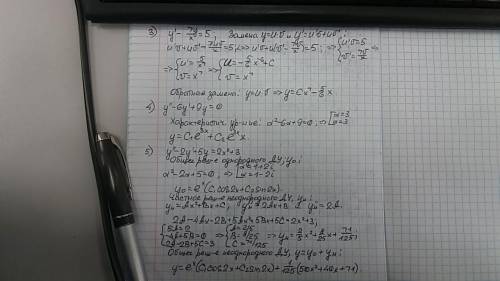 3) y' - 7y/x = 5; Замена y=uv и y'=u'v+uv';
u'v+uv' - 7uv/x = 5; <=> u'v+u(v' - 7v/x) = 5; => { u'v=5 v'=7v/x =>
=> { u' = 5/x⁷ v = x⁷ => { u = -5/6 x⁻⁶+C v = x⁷
Обратная замена: y=uv => y=Cx⁷ - 5/6 x.
4) y''-6y'+9y=0
Характеристич. ур-ние: α²-6α+9=0; => [ α=3 α=3
y=C₁e³ˣ+C₂e³ˣx.
5) y''-2y'+5y=2x²+3
Общее реш-е однородного ДУ, y₀;
α²-2α+5=0; => [ α=1+2i α=1-2i
y₀=eˣ(C₁cos2x+C₂sin2x)
Частное реш-е неоднородного ДУ, yн;
yн=Ax²+Bx+C, y'н=2Ax+B и y''н=2A.
2A-4Ax-2B+5Ax²+5Bx+5C=2x²+3;
{ 5A=2 -4A+5B=0 2A-2B+5C=3 => { A=2/5 B=8/25 C=71/125 => yн=2/5 x²+8/25 x+71/125;
Общее реш-е неоднородного ДУ, y=y₀+yн;
y=eˣ(C₁cos2x+C₂sin2x)+1/125(50x²+40x+71).